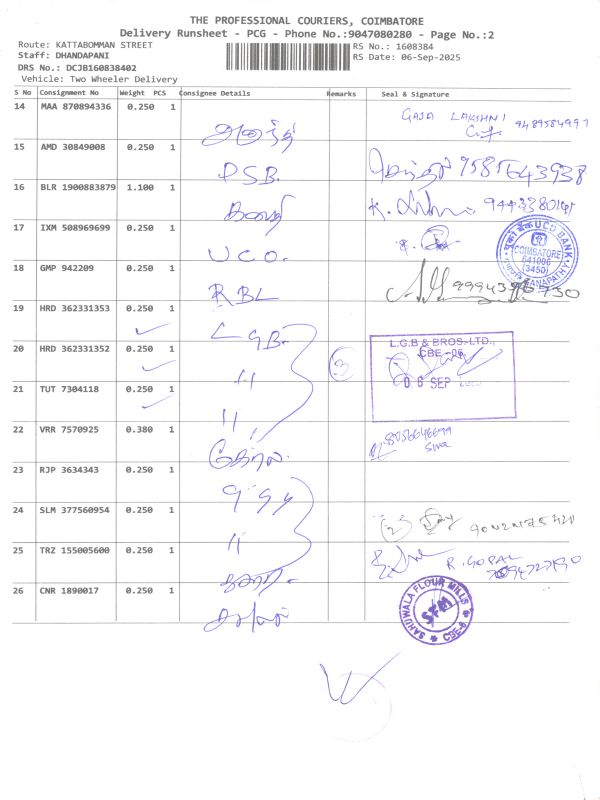 THE PROFESSIONAL COURIERS, COIMBATORE
Delivery Runsheet - PCG - Phone No.:9047080280 - Page No.:2
Route: KATTABOMMAN STREET
RS No.: 1608384
Staff: DHANDAPANI
RS Date: 06-Sep-2025
DRS No.: DCJB160838402
Vehicle: Two Wheeler Delivery
S No Consignment No Weight PCS Consignee Details Remarks Seal & Signature
14 MAA 870894336 0.250 1 GAJA LAKSHMI
9489584997
15 AMD 30849008 0.250 1 P.S.B. 9585643938
16 BLR 1900883879 1.100 1
17 IXM 508969699 0.250 1 U.C.O. UCO BANK COIMBATORE 641006 (3450) GANAPATHY
18 GMP 942209 0.250 1 RBL
19 HRD 362331353 0.250 1 L.G.B.
L.G.B & BROS.LTD.,
20 HRD 362331352 0.250 1 11 3 CBE-06
06 SEP 2025
21 TUT 7304118 0.250 1 11
22 VRR 7570925 0.380 1 8056646699
Siva
23 RJP 3634343 0.250 1
24 SLM 377560954 0.250 1 11 2
25 TRZ 155005600 0.250 1 R. GOPAL
26 CNR 1890017 0.250 1 SAHUWALA FLOUR MILLS SFM CBE-6